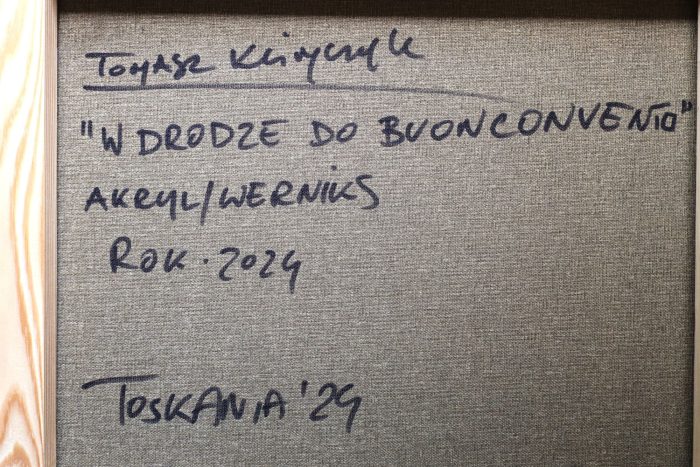 Tomasz Klimczyk
"W DRODZE DO BUONCONVENTO"
AKRYL/WERNIKS
ROK. 2024
TOSKANIA '24